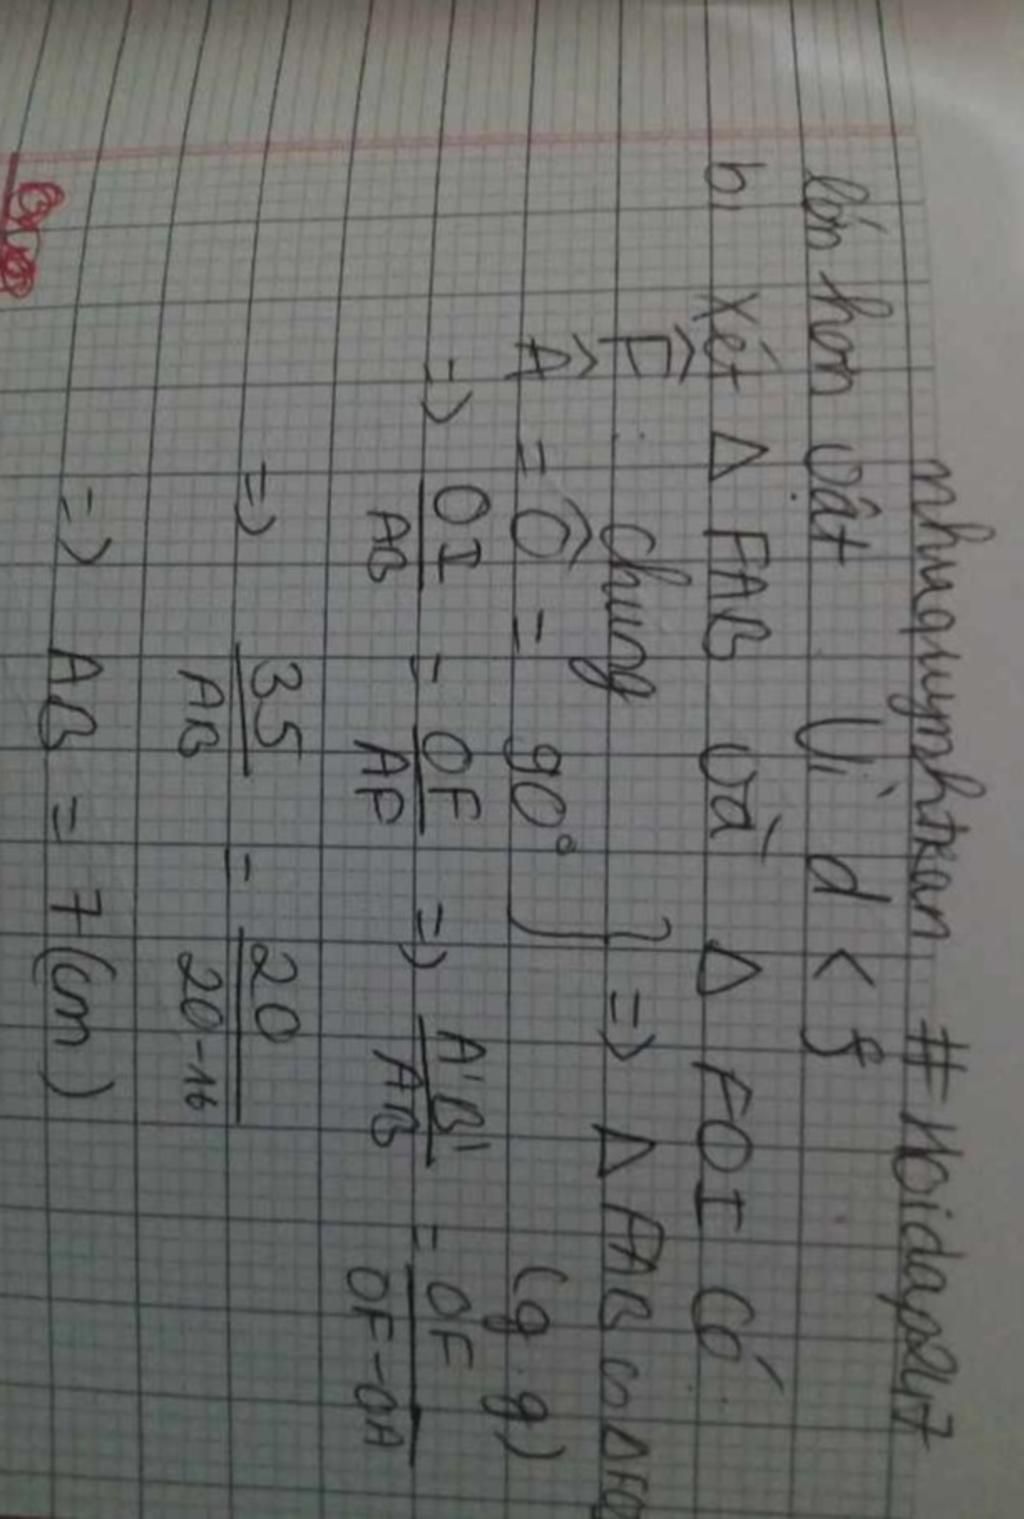 nhuquynhtran #Hoidap247
lớn hơn vật vì d < f
b, Xét Δ FAB và Δ FOI có
F̂ : chung } => Δ FAB ∽ Δ FOI
Â = Ô = 90° (g.g)
=> OI/AB = OF/AF => A'B'/AB = OF/OF-OA
=> 35/AB = 20/20-16
=> AB = 7 (cm)